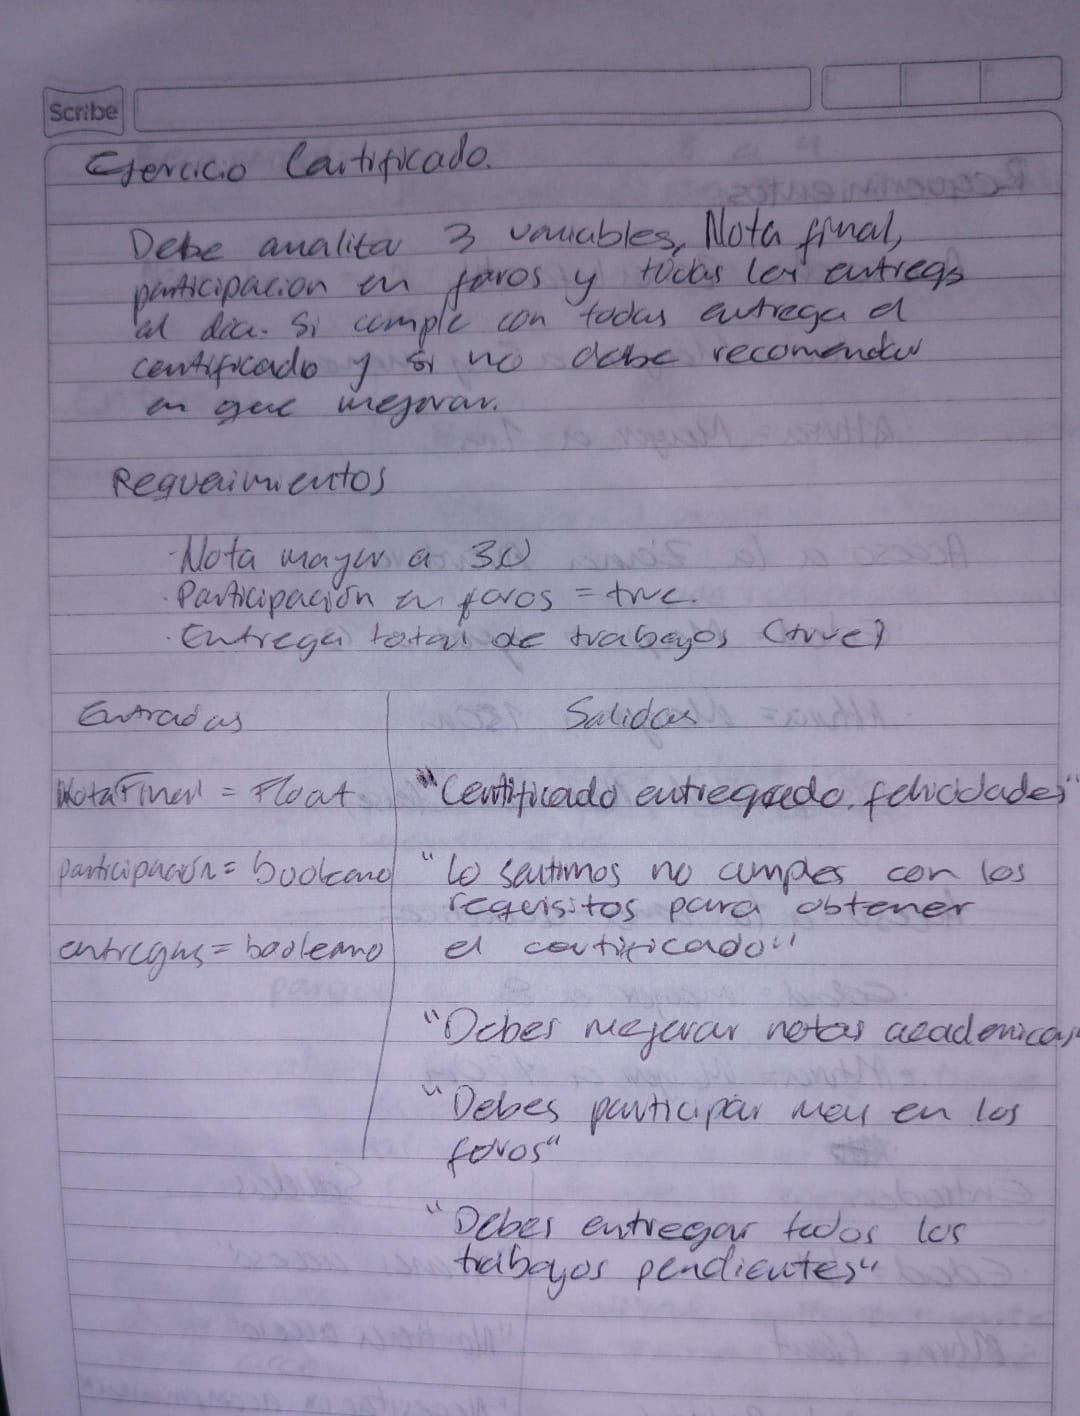 Scribe
Ejercicio Certificado.
Debe analizar 3 variables, Nota final,
participacion en foros y todas las entregs
al dia. Si cumple con todas entrega el
certificado y si no debe recomendar
en que mejorar.
Requerimientos
· Nota mayor a 30
· Participación en foros = true.
· Entrega total de trabajos (true)
Entradas Salidas
NotaFinal = Float "Certificado entregado, felicidades"
participación = booleano "Lo sentimos no cumples con los
requisitos para obtener
entregas = booleano el certificado"
"Debes mejorar notas academicas"
"Debes participar mas en los
foros"
"Debes entregar todos los
trabajos pendientes"